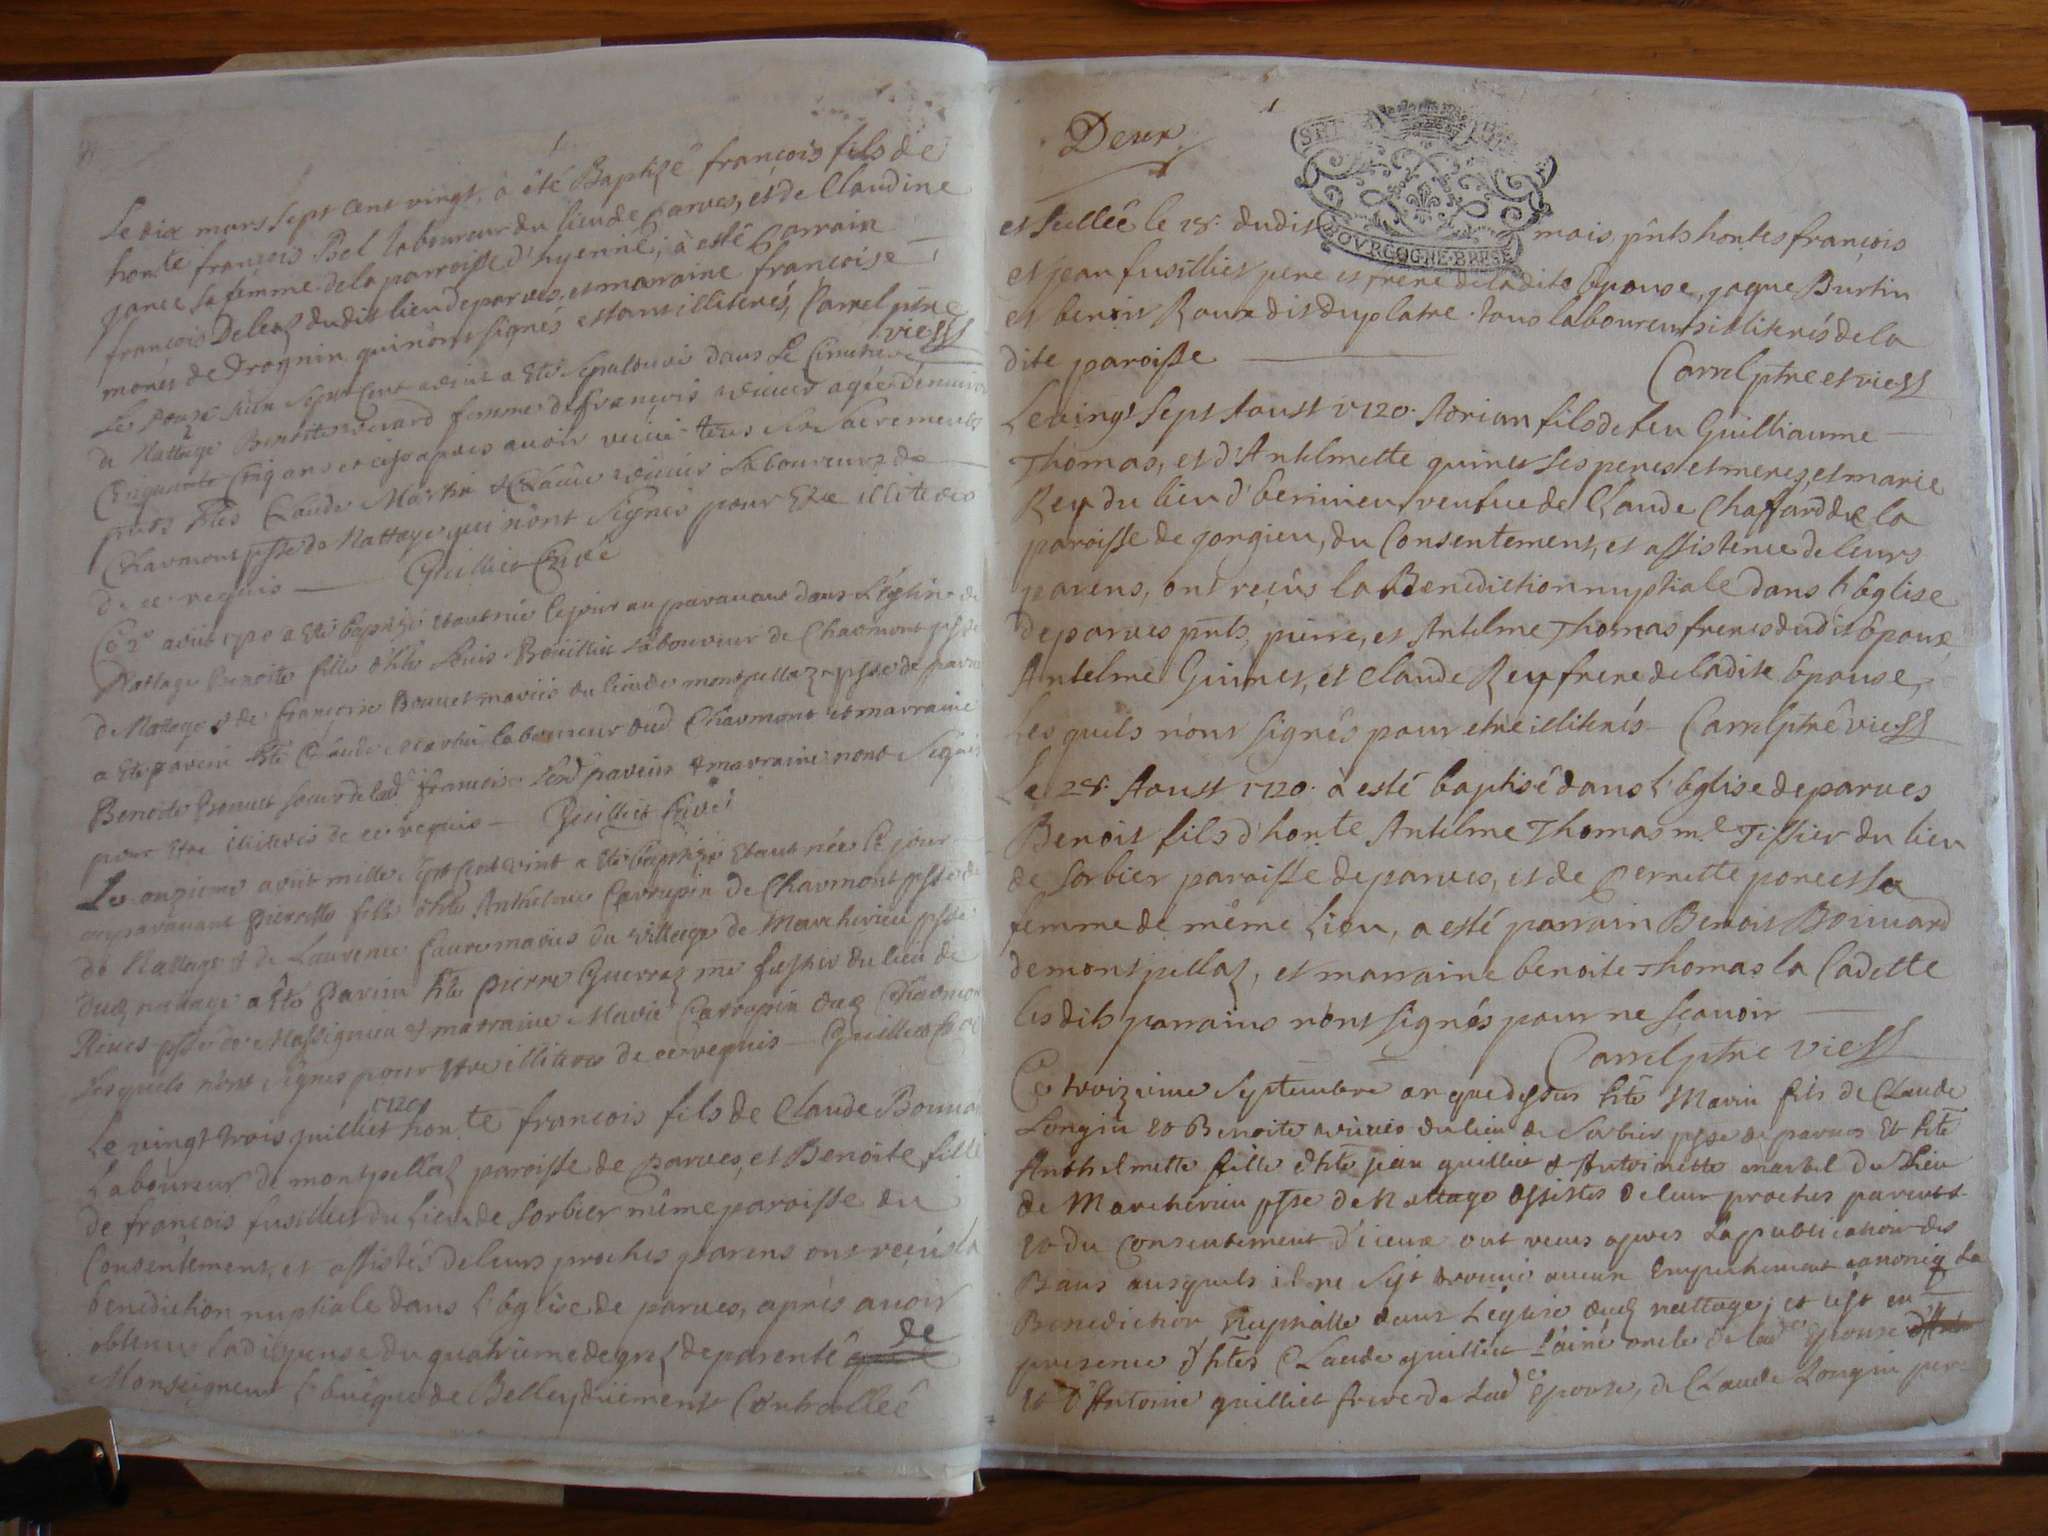 Le dix mars sept cent vingt, à été Baptizé françois fils de
hon.te françois Psel laboureur du lieu de parves, et de Claudine
janee sa femme de la parroisse d'hyenne, à esté Parrain
françois Deleaz dudit lieu de parves, et maraine francoise
monet de drognin qui n'ont signés estant illiterés, Carrel ptre
vic SS
Le Douze Juin sept Cent a Eté Sepulturé dans Le Cimetiere
de Nattage Benoite femme de françois agée d'environ
Cinquante Cinq ans et ce apres avoir tous les Sacrements
pnts htes Claude Martin et Claude laboureurs de
Charmont psse de Nattage qui n'ont Signés pour Etre illiterés
de ce requis Guilliet Curé
Ce 2e avril 1720 a Eté baptisé Etant née le jour auparavant dans L'église de
Nattage Benoite fille d'hte Louis Bouillin laboureur de Charmont psse
de Nattage et de françoise Bonnet mariés du lieu de montpellaz psse de parves
a Eté parein hte Claude Martin laboureur dud Charmont et marraine
Benoite Bonnet soeur de lad françoise Lesd parein et marraine n'ont Signés
pour Etre illiterés de ce requis Guilliet Curé
Le onzieme avril mille Sept Cent vint a Eté baptizé Etant née le jour
auparavant Pierrette fille d'hte Anthelme Carrupin de Charmont psse de
de Nattage et de Laurence faure mariés du village de Marcherieu psse
dud nattage a Eté Parein hte Pierre Guerraz me du lieu de
Rives psse de Massignieu et marraine Marie Carrupin dud Charmont
Lesquels n'ont Signés pour Etre illiterés de ce requis Guilliet Curé
1720
Le vingt trois juilliet hon.te françois fils de Claude Bonnard
Laboureur de montpellaz paroisse de Parves, et Benoite fille
de françois fusilliet du Lieu de Sorbier même paroisse du
Consentement, et assistés de leurs proches parens ont reçus la
benediction nuptiale dans l'Eglise de parves, aprés avoir
obtenu la dispense du quatrieme degrez de parenté de
Monseigneur l'Evêque de Belley düement Controllée
Deux
et scellée le 18. dudit mois, pnts hontes françois
et jean fusilliet pere et frere de ladite Epouse, jaque Burtin
et benoit Roux dit duplatre tous laboureurs illiterés de la
dite paroisse
Carrel ptre et vic SS
BOVRGOGNE·BRESE
Le vingt Sept Aoust 1720. Adrian fils de feu Guilliaume
Thomas, et d'Antelmette guinet ses peres et meres, et marie
Rey du lieu d' veufve de Claude Chaffard de la
paroisse de gorgieu, du Consentement, et assistence de leurs
parens, ont reçus la Benediction nuptiale dans l'Eglise
de parves pnts, pierre, et Antelme Thomas freres dudit Epoux
Antelme Guinet, et Claude Rey frere de ladite Epouse,
Les quels n'ont signés pour etre illiterés Carrel ptre vic SS
Le 28. Aoust 1720. a esté baptisé dans l'Eglise de parves
Benoit fils d'hon.te Antelme Thomas m.e Tissier du lieu
de Sorbier paroisse de parves, et de Pernette poncet sa
femme de même Lieu, a esté parrain Benoit Bonnard
de montpellaz, et marraine benoite Thomas la Cadette
les dits parrains n'ont signés pour ne sçavoir
Carrel ptre vic SS
Ce troizieme Septembre an que dessus hte Marin fils de Claude
Longin et Benoite du lieu de Sorbier psse de parves Et hte
Anthelmette fille d'hte jean guilliet et Antoinette martel du Lieu
de Marcherieu psse de Nattage Assistés de leur proches parents
et du consentement d'iceux ont reçus apres La publication des
Bans ausquels il ne s'est trouvé aucun Empechement canoniq La
Benediction Nuptialle dans L'eglise dud nattage; et c'est en
presence d'htes Claude guilliet L'ainé oncle de lad Epouse
et d'Antoine guilliet frere de lad Epouse, de Claude Longin pere